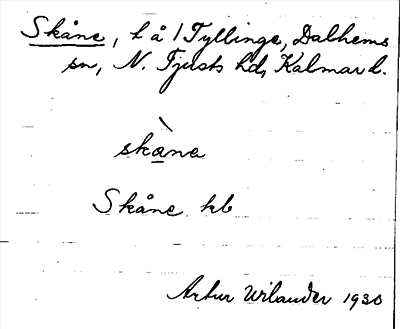 Skåne, l å / Tyllinge, Dalhems
sn, N. Tjusts hd, Kalmar l.
skàna
Skåne kb
Artur Wilander 1930